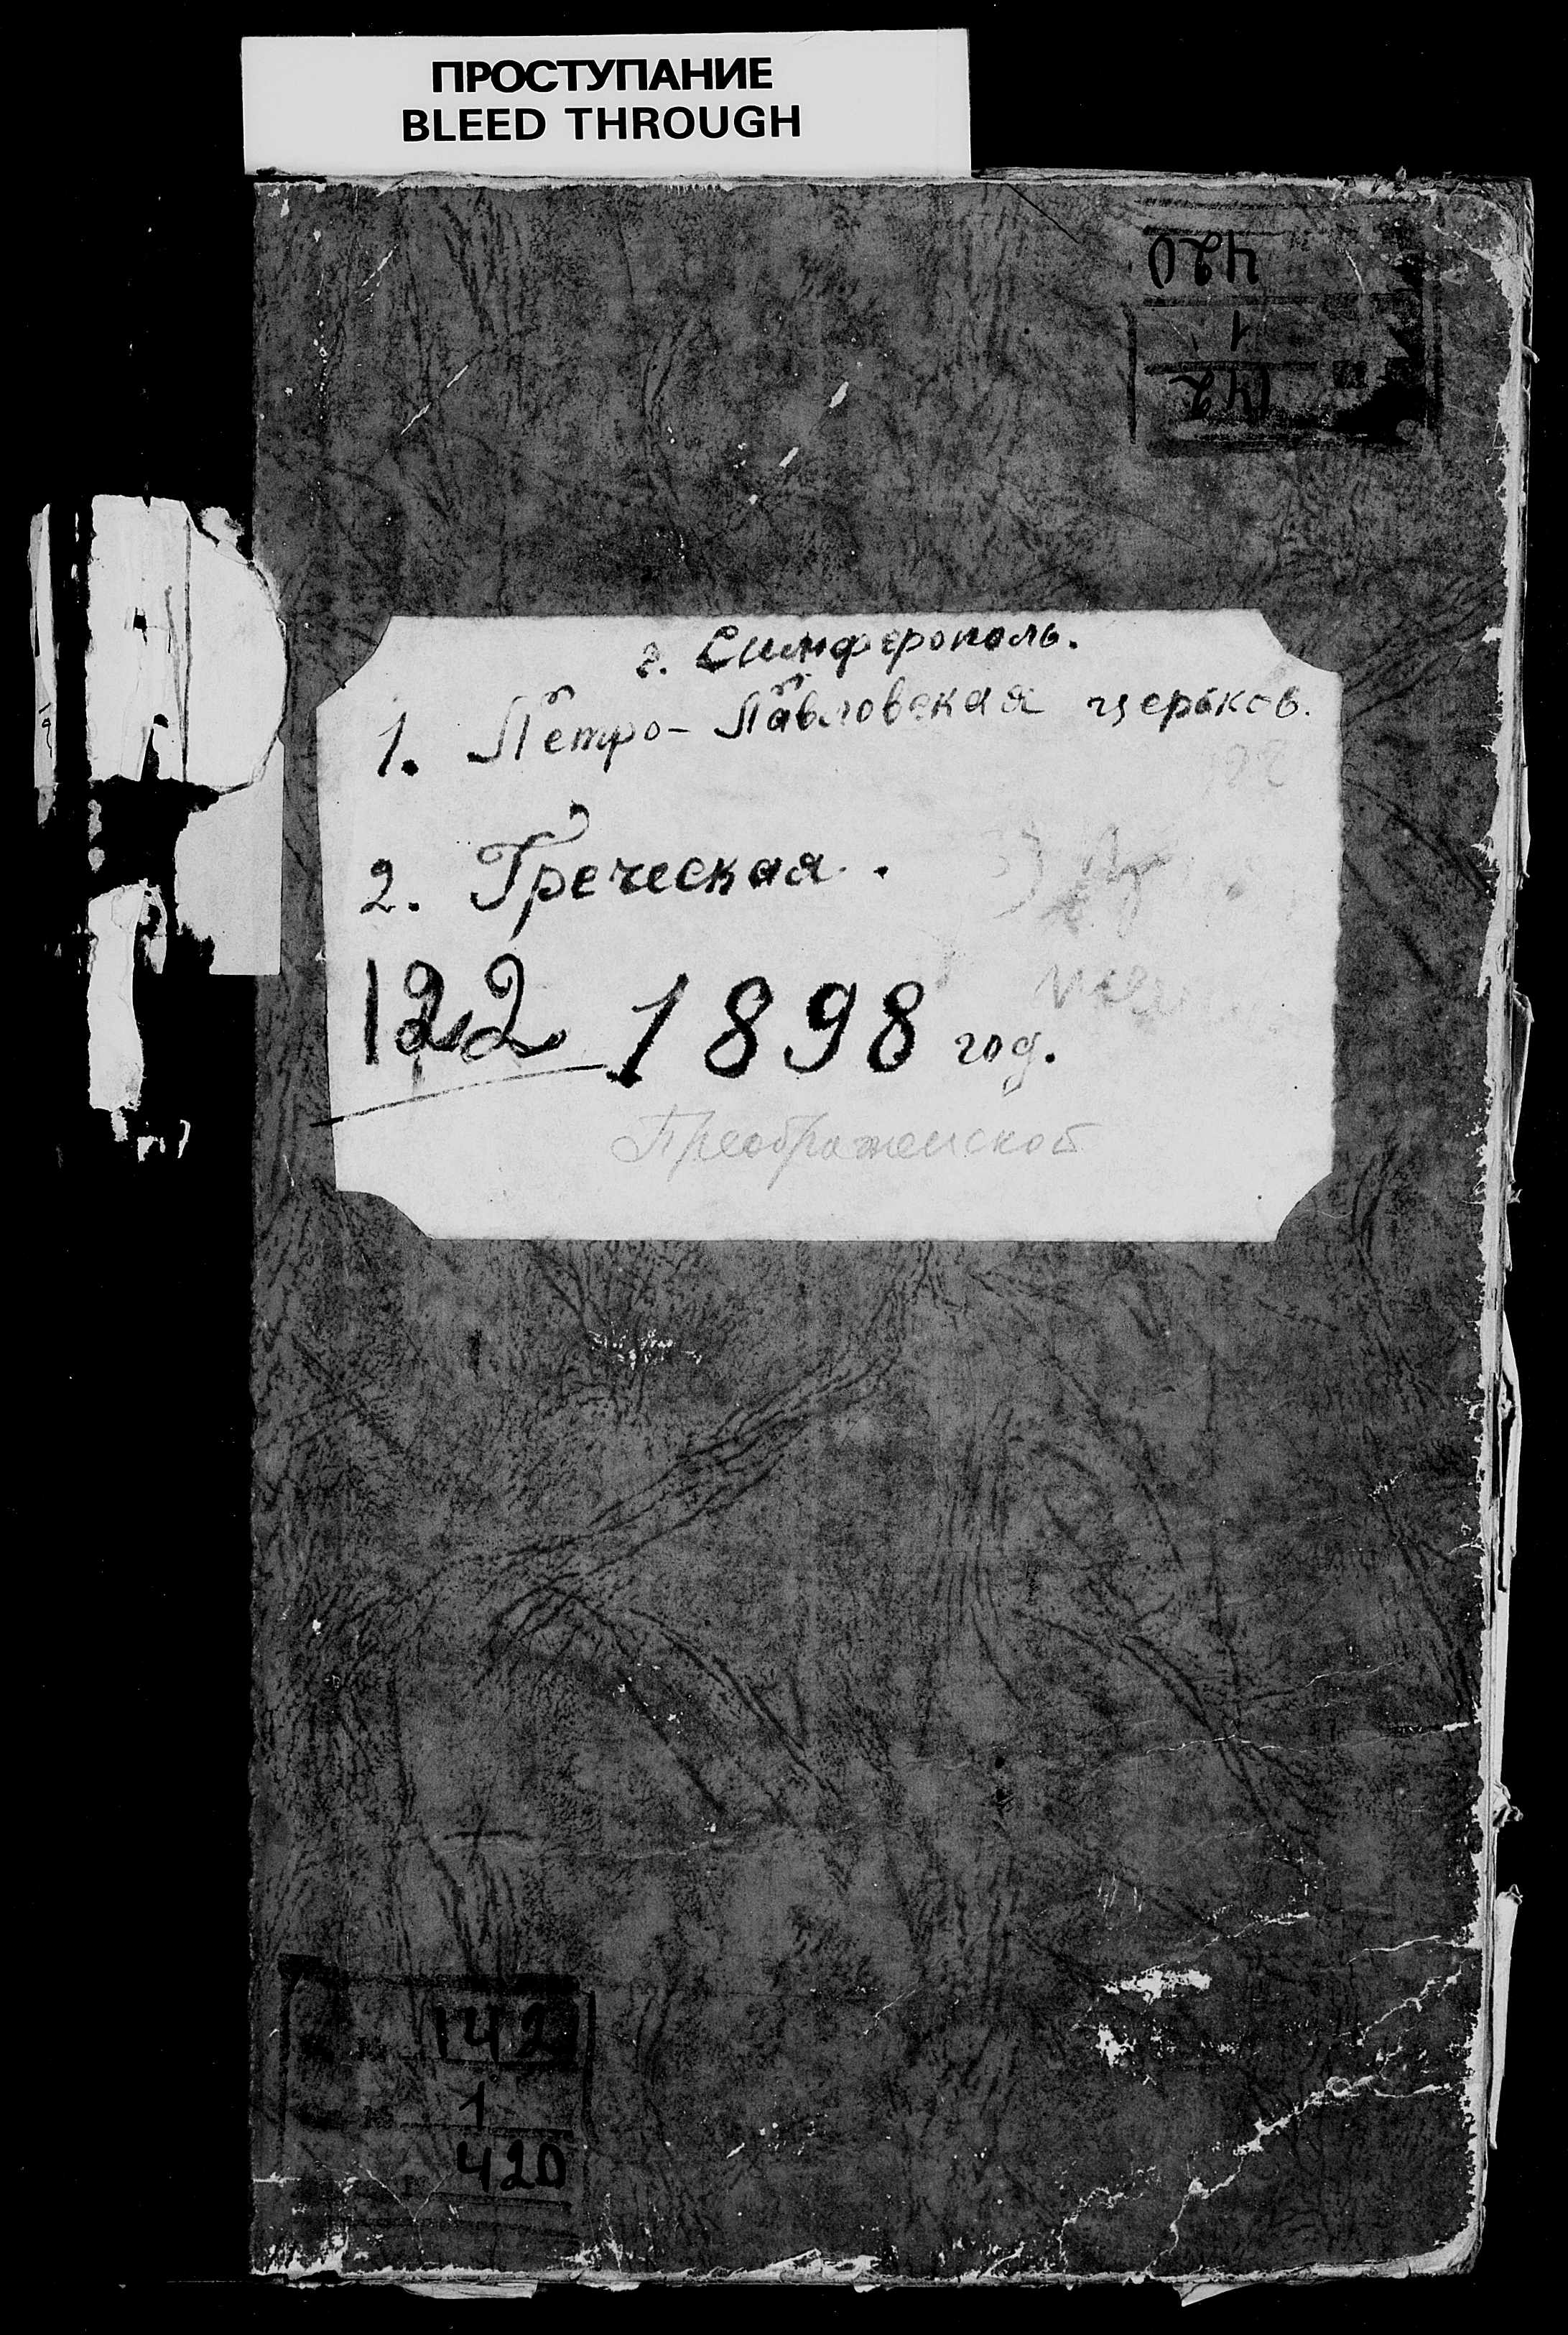 ПРОСТУПАНИЕ
BLEED THROUGH
420
1
142
г. Симферополь.
1. Петро-Павловская церьков.
2. Греческая.
122 1898 год.
Преображенской
142
1
420